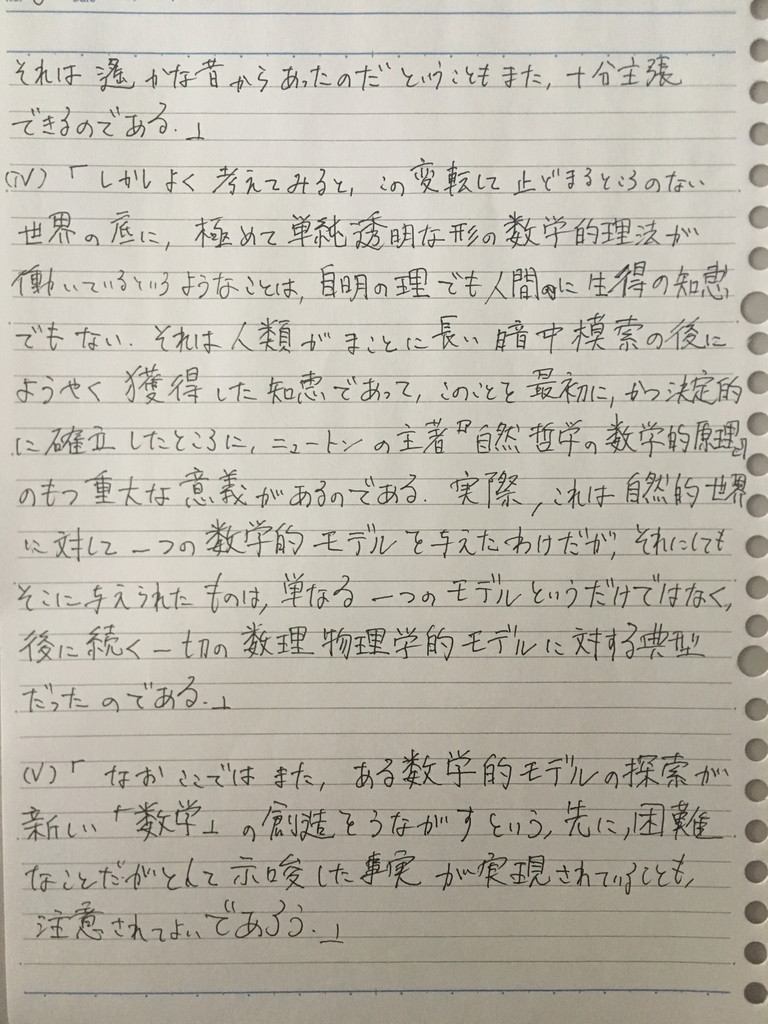 それは遙かな昔からあったのだということもまた, 十分主張
できるのである.」
(Ⅳ)「しかしよく考えてみると, この変転して止どまるところのない
世界の底に, 極めて単純透明な形の数学的理法が
働いているというようなことは, 自明の理でも人間に生得の知恵
でもない. それは人類がまことに長い暗中模索の後に
ようやく獲得した知恵であって, このことを最初に, かつ決定的
に確立したところに, ニュートンの主著『自然哲学の数学的原理』
のもつ重大な意義があるのである. 実際, これは自然的世界
に対して一つの数学的モデルを与えたわけだが, それにしても
そこに与えられたものは, 単なる一つのモデルというだけではなく,
後に続く一切の数理物理学的モデルに対する典型
だったのである.」
(Ⅴ)「なおここではまた, ある数学的モデルの探索が
新しい「数学」の創造をうながすという, 先に, 困難
なことだがとんて示唆した事実が実現されていることも,
注意されてよいであろう.」